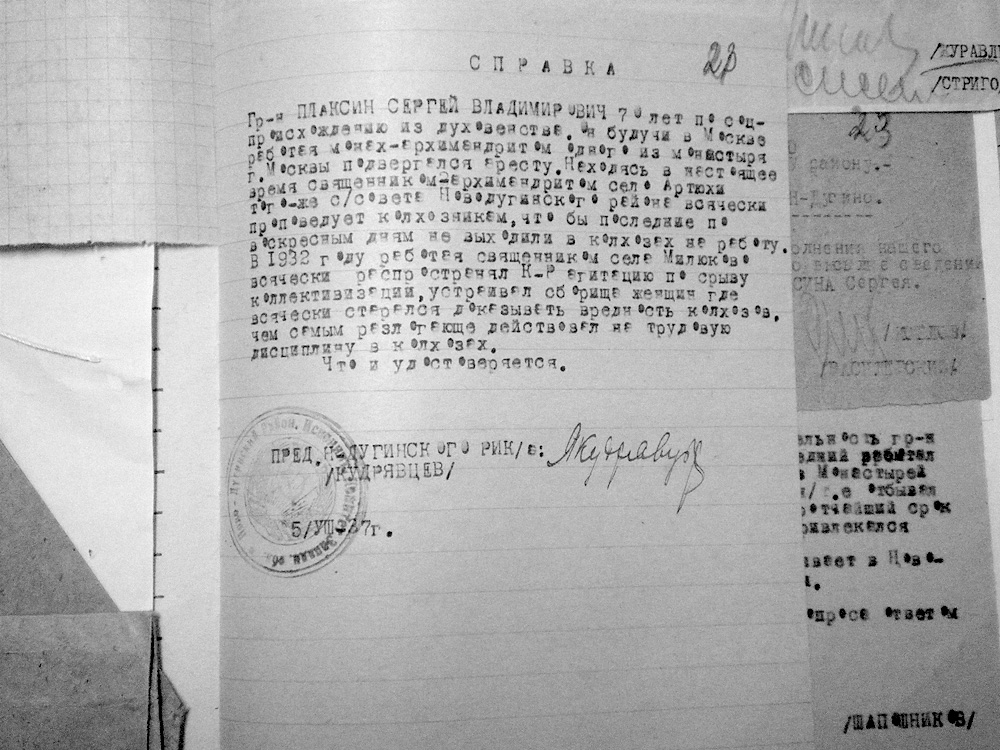 СПРАВКА
23
Гр-н ПЛАКСИН СЕРГЕЙ ВЛАДИМИРОВИЧ 70 лет по соц-
происхождению из духовенства. Он будучи в Москве
работая монах-архимандритом одного из монастыря
г.Москвы подвергался аресту.Находясь в настоящее
время священником-архимандритом село Артюхи
того-же с/совета Новодугинского района всячески
проповедует колхозникам,что бы последние по
воскресным дням не выходили в колхозах на работу.
В 1932 году работая священником села Милюково
всячески распространял К-Р агитацию по срыву
коллективизации,устраивал сборища женщин где
всячески старался доказывать вредность колхозов,
чем самым разлогающе действовал на трудовую
дисциплину в колхозах.
Что и удостоверяется.
ПРЕД.Н-ДУГИНСКОГО РИК/а:
/КУДРЯВЦЕВ/
5/УШ-37г.
/ЖУРАВЛ
/СТРИГО
23
району.-
Н-Дугино.
олнения вашего
СУНА Сергея.
/ВАСИЛЕВСКИЙ/
ельность гр-н
едний работал
в Монастырей
/г.е отбывал
ротчайший срок
ривлекался
ивает в Ново-
опроса ответом
/ШАПОШНИКОВ/